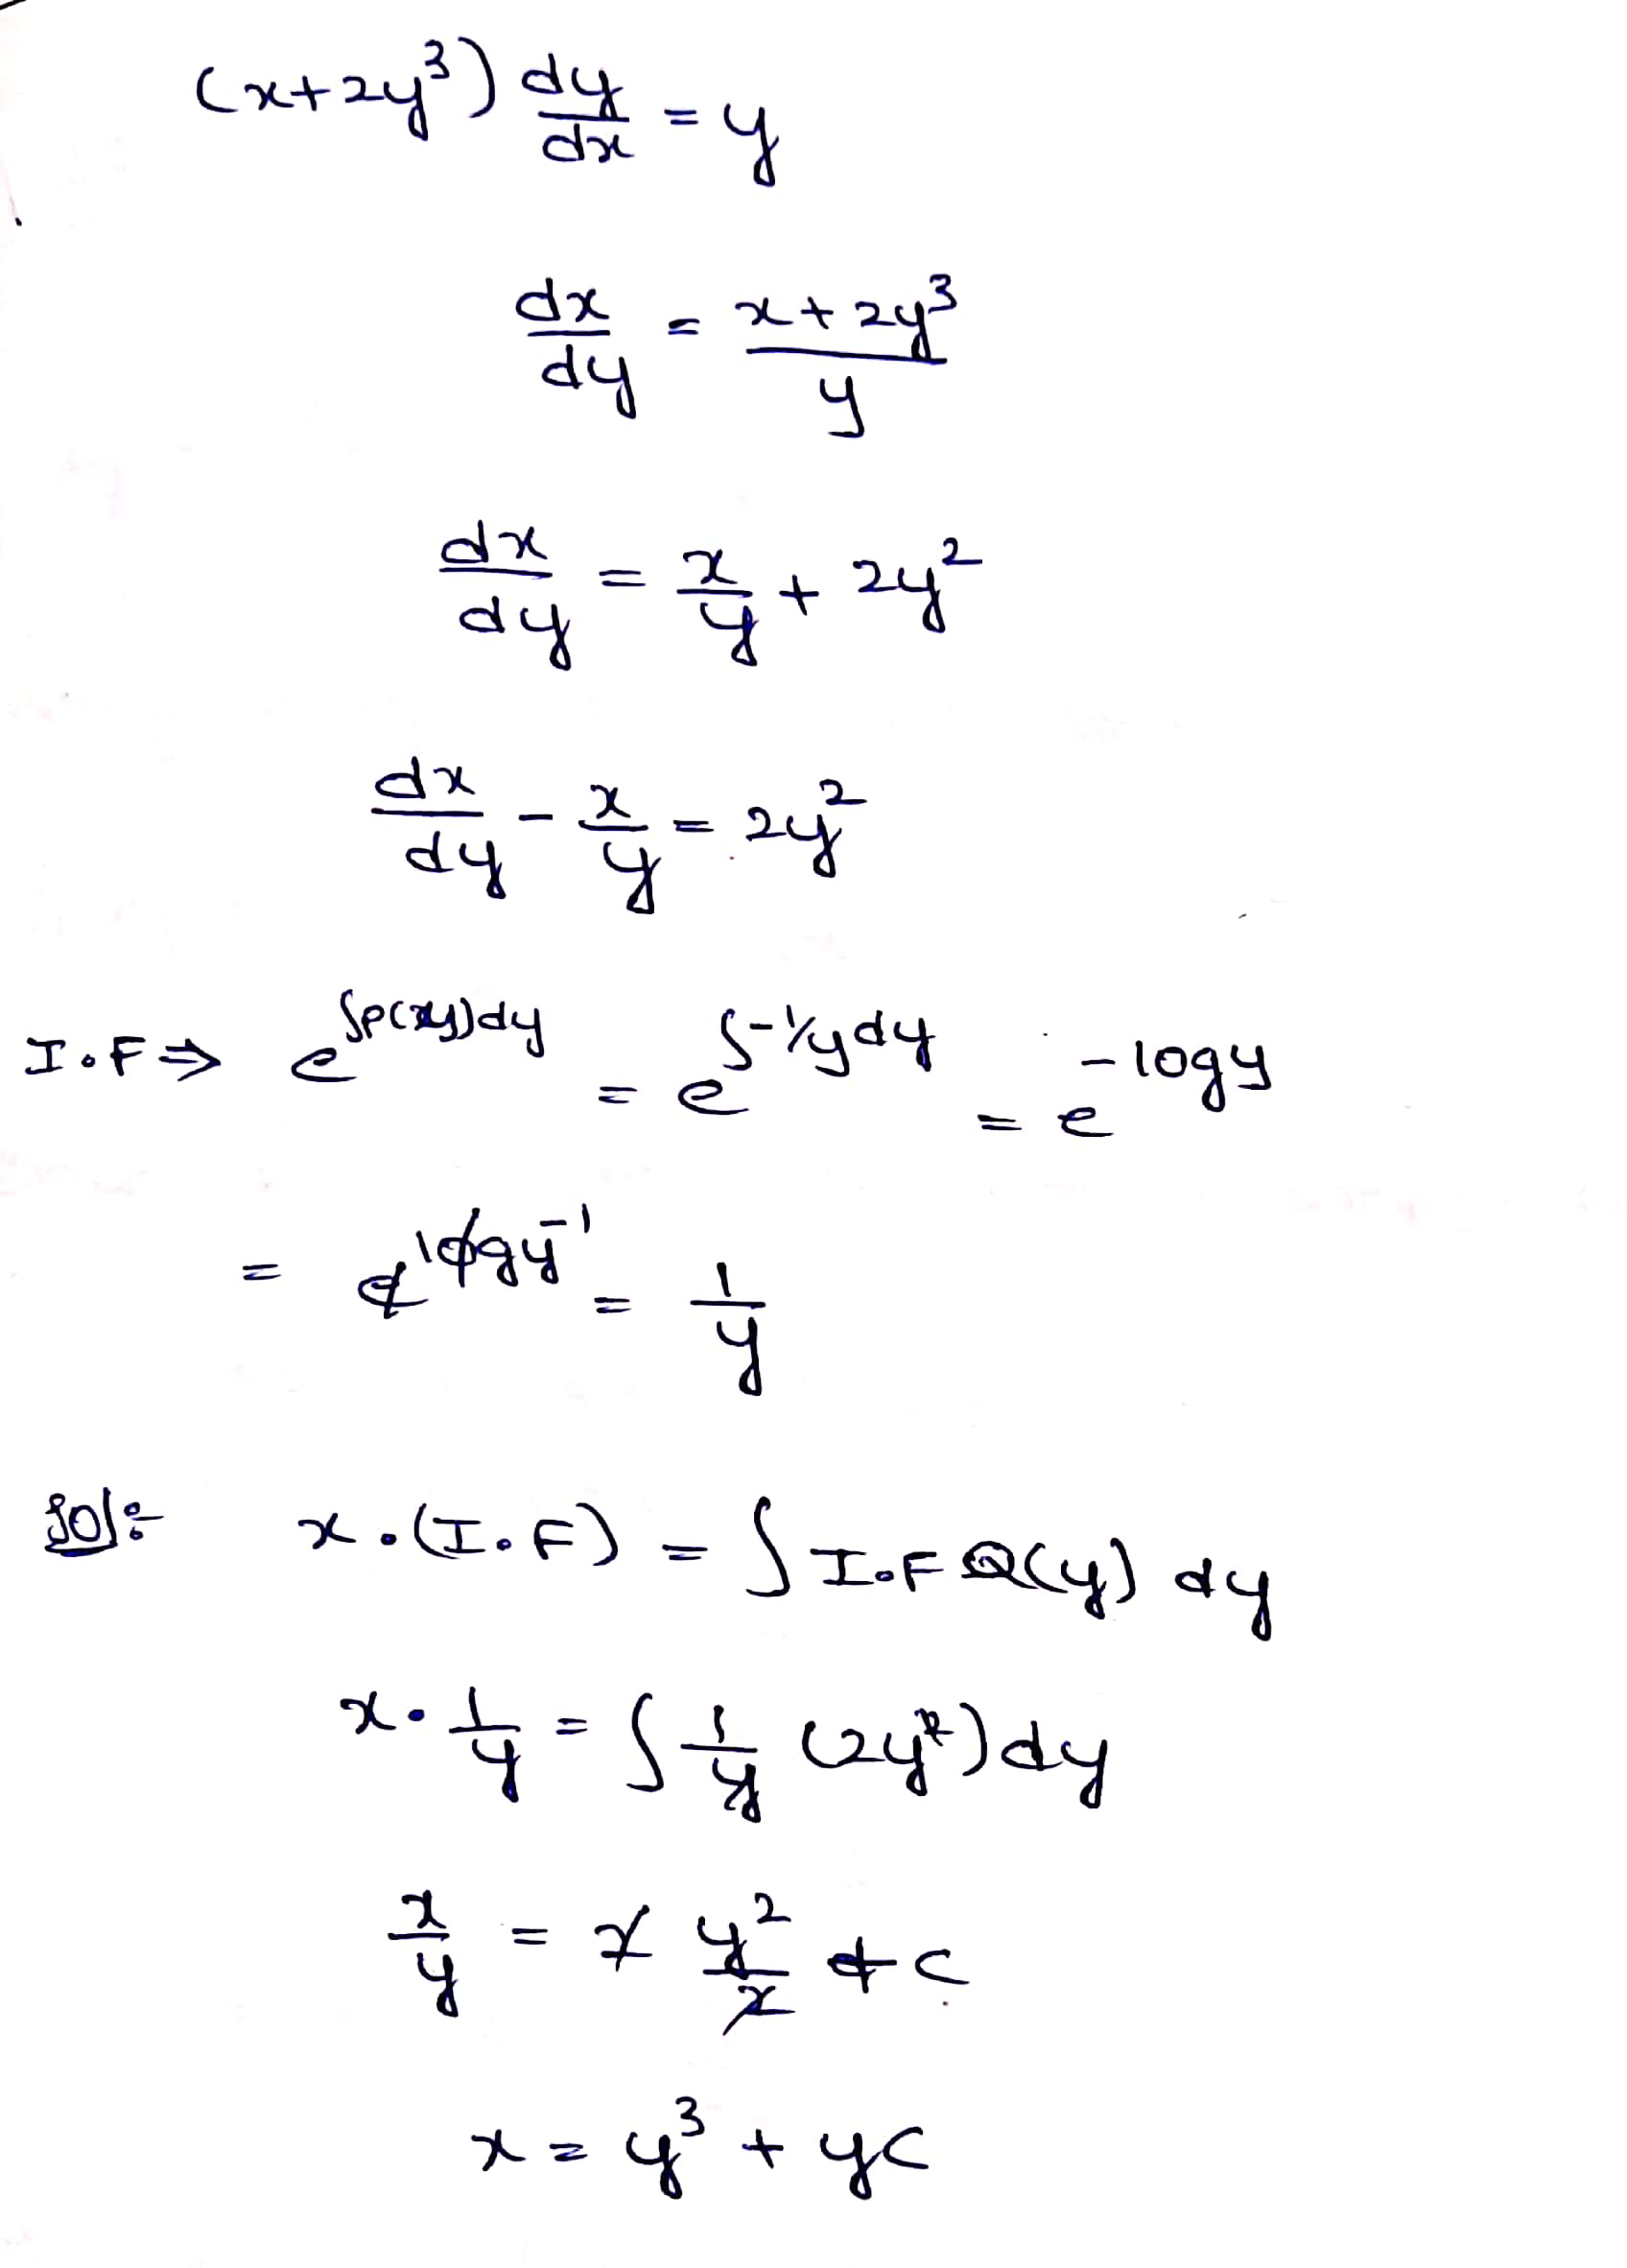 (x+2y³) dy/dx = y
dx/dy = (x+2y³)/y
dx/dy = x/y + 2y²
dx/dy - x/y = 2y²
I.F ⇒ e^∫P(y)dy = e^∫-1/y dy = e^-log y
= e^log y⁻¹ = 1/y
Sol:- x.(I.F) = ∫ I.F Q(y) dy
x . 1/y = ∫ 1/y (2y²) dy
x/y = 2 y²/2 + c
x = y³ + yc